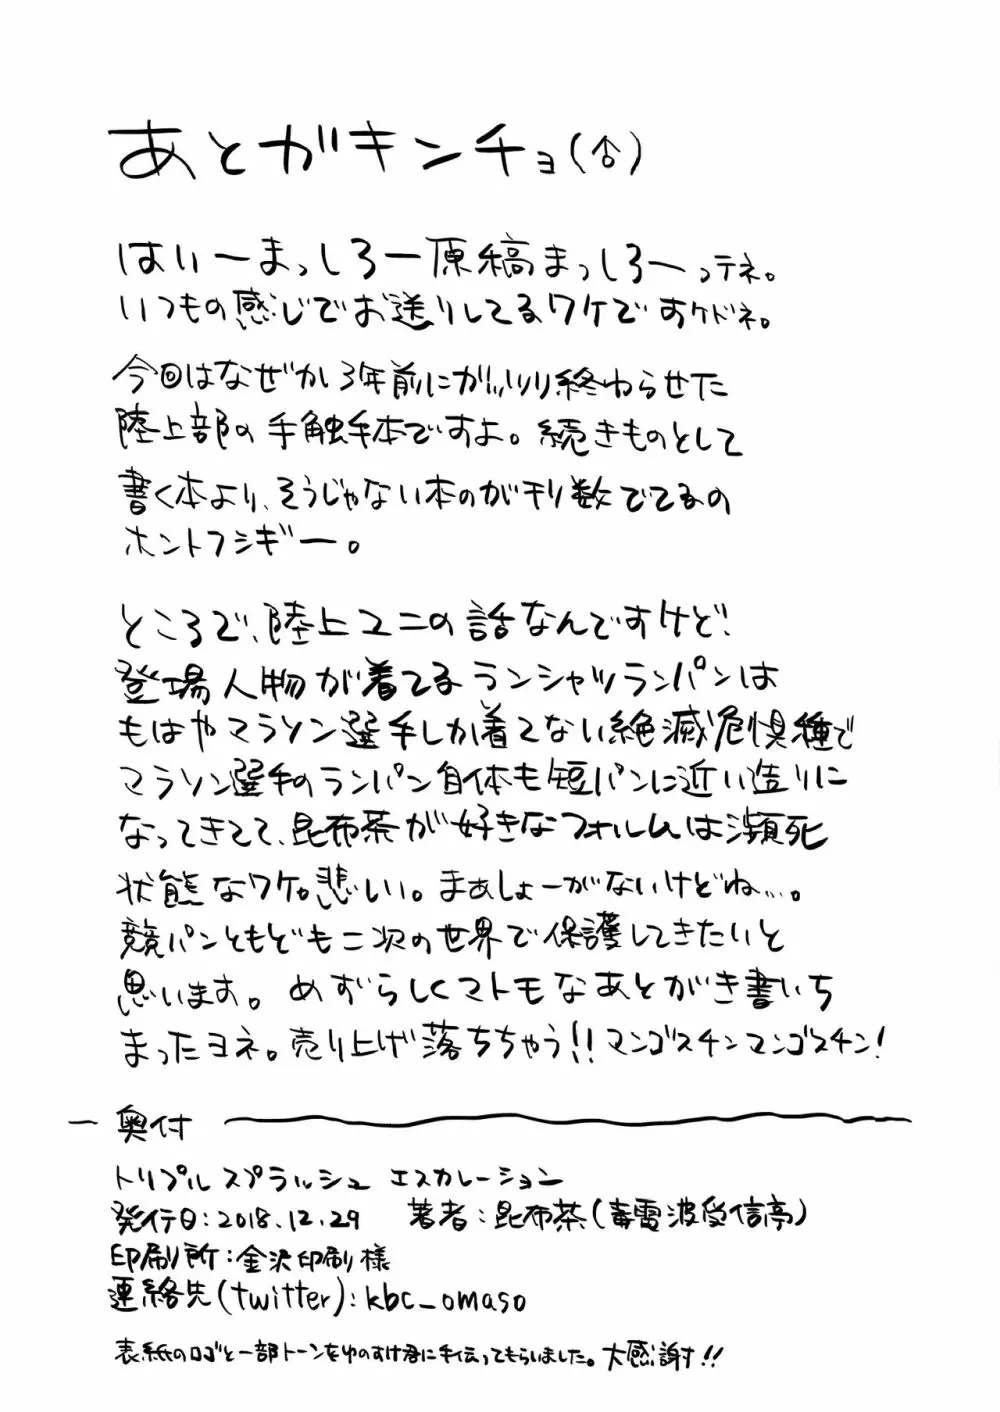 あとがキンチョ(♂)
はいーまっしろー原稿まっしろーってネ。
いつもの感じでお送りしてるワケですケドネ。
今回はなぜか3年前にガッツリ終わらせた
陸上部の手触手本ですよ。続きものとして
書く本より、そうじゃない本のが刊数でてるの
ホントフシギー。
ところで、陸上ユニの話なんですけど!
登場人物が着てるランシャツランパンは
もはやマラソン選手しか着てない絶滅危惧種で
マラソン選手のランパン自体も短パンに近い造りに
なってきてて、昆布茶が好きなフォルムは瀕死
状態なワケ。悲しい。まぁしょーがないけどね…。
競パンともども二次の世界で保護してきたいと
思います。めずらしくマトモなあとがき書いち
まったヨネ。売り上げ落ちちゃう!!マンゴスチンマンゴスチン!
奥付
トリプル スプラッシュ エスカレーション
発行日:2018.12.29 著者:昆布茶(毒電波受信亭)
印刷所:金沢印刷様
連絡先(twitter):kbc_omaso
表紙のロゴと一部トーンをゆのすけ君に手伝ってもらいました。大感謝!!